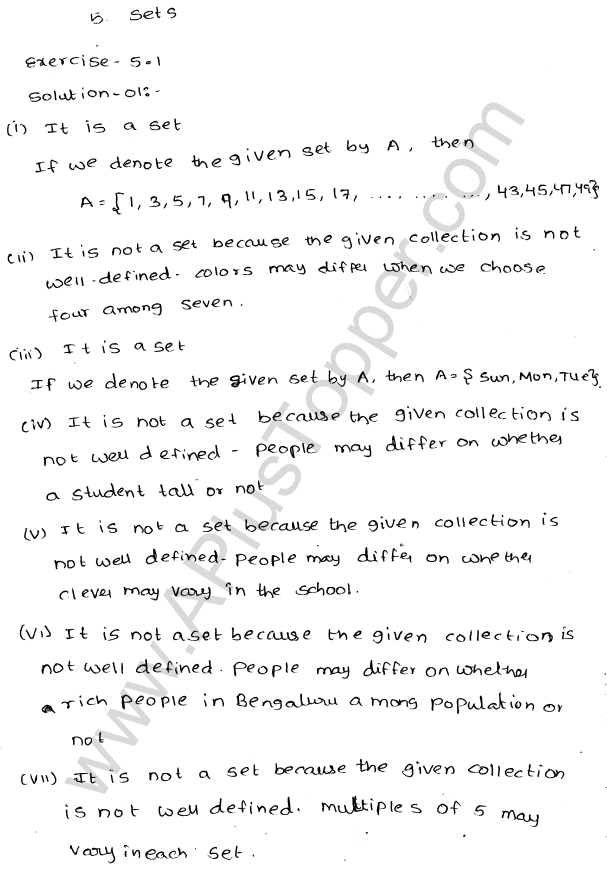 5. Sets
Exercise - 5.1
Solution-01:-
(i) It is a set
If we denote the given set by A, then
A = {1, 3, 5, 7, 9, 11, 13, 15, 17, .... .... ..., 43, 45, 47, 49}
(ii) It is not a set because the given collection is not
well-defined. colors may differ when we choose
four among seven.
(iii) It is a set
If we denote the given set by A, then A = {Sun, Mon, Tue}
(iv) It is not a set because the given collection is
not well defined - people may differ on whether
a student tall or not
(v) It is not a set because the given collection is
not well defined - people may differ on whether
clever may vary in the school.
(vi) It is not a set because the given collection is
not well defined. people may differ on whether
a rich people in Bengaluru a mong population or
not
(vii) It is not a set because the given collection
is not well defined. multiples of 5 may
vary in each set.
www.APlusTopper.com